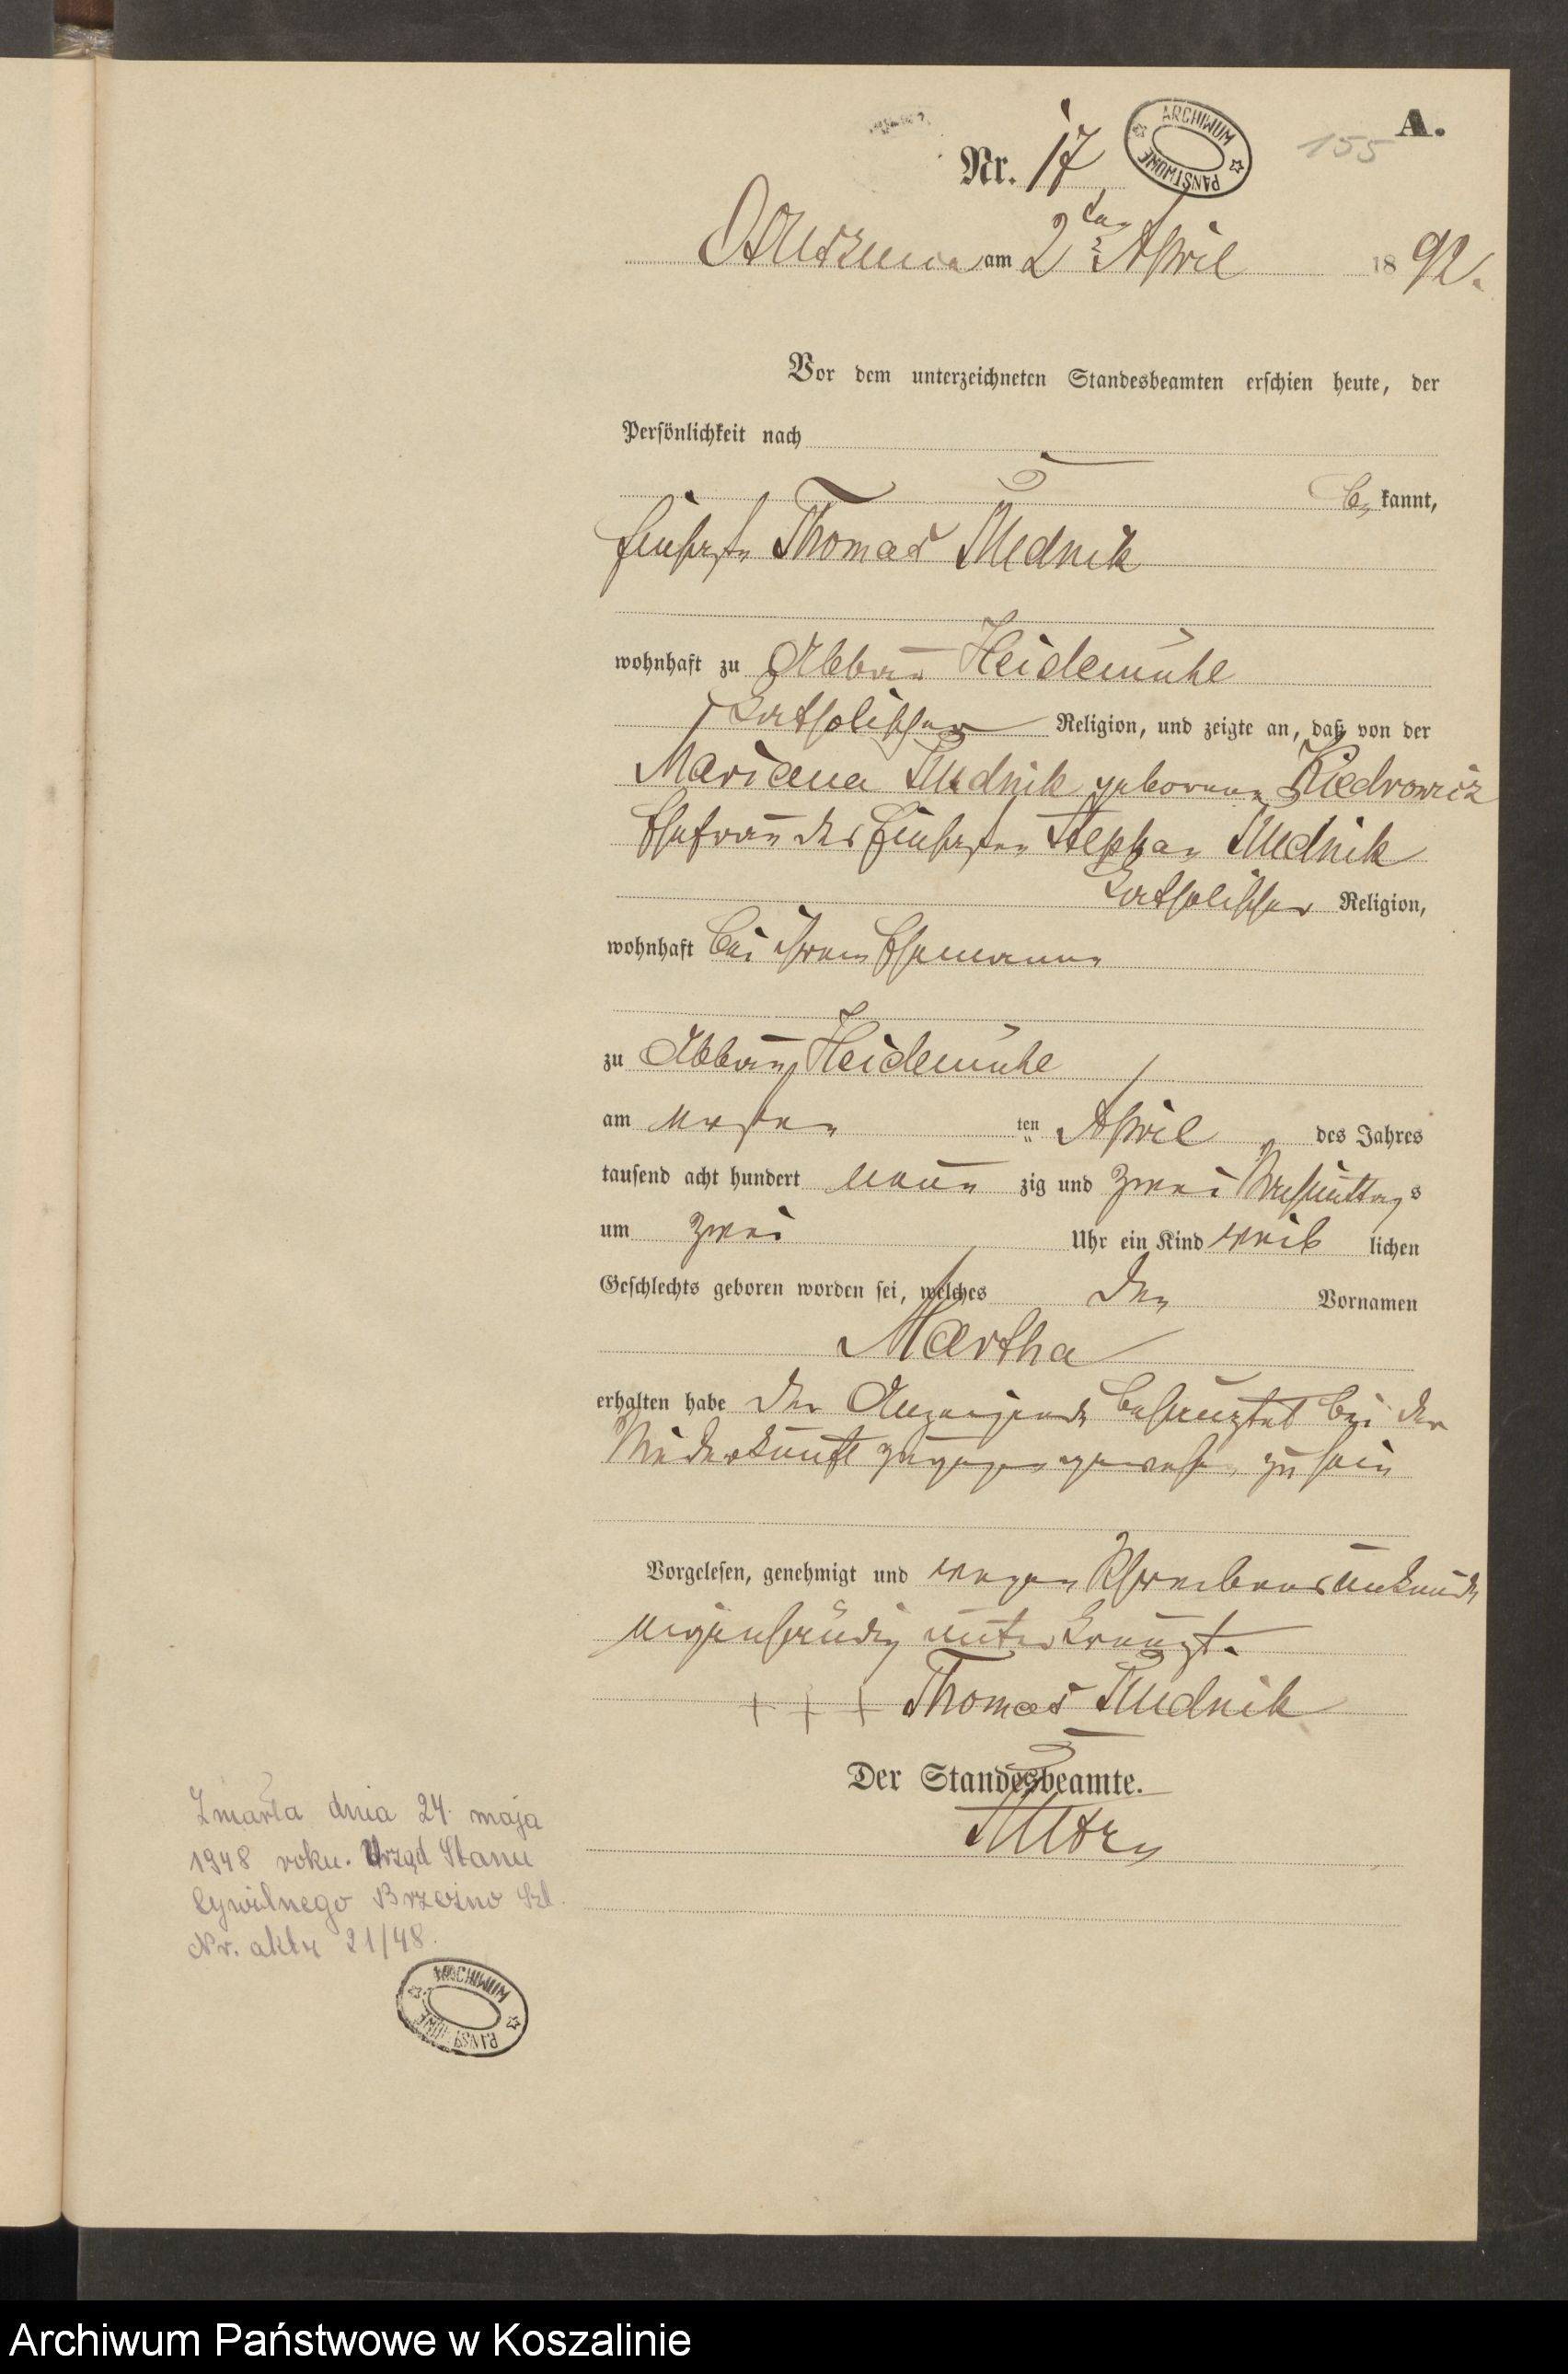 A.
ARCHIWUM PAŃSTWOWE
155
Nr. 17
am 2ten April 1892.
Vor dem unterzeichneten Standesbeamten erschien heute, der
Persönlichkeit nach
be kannt,
Thomas Rudnik
wohnhaft zu Abbau Heidemühl
katholischer Religion, und zeigte an, daß von der
Mariana Rudnik geborene Kiedrowicz
Ehefrau des Stephan Rudnik
katholischer Religion,
wohnhaft bei ihrem Ehemanne
zu Abbau Heidemühl
am ersten ten April des Jahres
tausend acht hundert neun zig und zwei Nachmittags
um zwei Uhr ein Kind weib lichen
Geschlechts geboren worden sei, welches den Vornamen
Martha
erhalten habe Der Anzeigende behauptet bei der
Niederkunft zugegen gewesen zu sein
Vorgelesen, genehmigt und wegen Schreibensunkunde
eigenhändig unterkreuzt.
+ + + Thomas Rudnik
Der Standesbeamte.
Zmarła dnia 24. maja
1948 roku. Urząd Stanu
Cywilnego Brzeźno Szl.
Nr. aktu 21/48.
ARCHIWUM PAŃSTWOWE
Archiwum Państwowe w Koszalinie